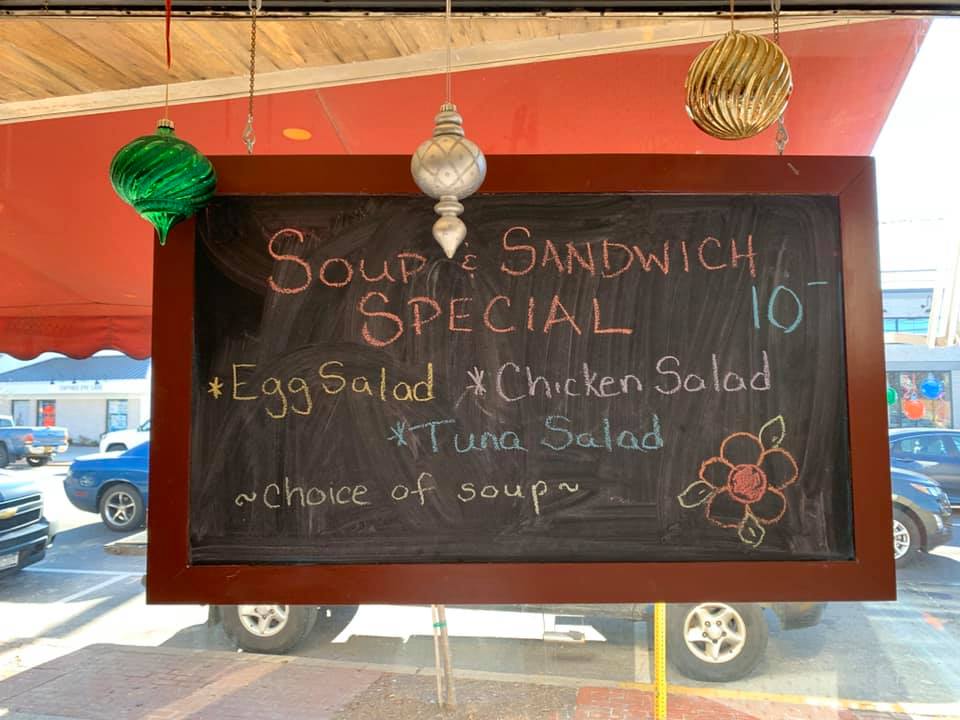 Soup & Sandwich
Special 10-
*Egg Salad *Chicken Salad
*Tuna Salad
~choice of soup~